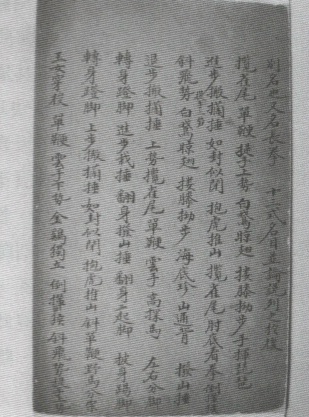 別名也又名長拳 十六式名目並論說列之於後
攬雀尾 單鞭 提手上勢 白鶴晾翅 摟膝拗步 手揮琵琶
進步搬攔捶 如封似閉 抱虎推山 攬雀尾 肘底看拳 倒攆猴
斜飛勢 白鶴晾翅 摟膝拗步 海底珍 山通背 撇山捶
退步搬攔捶 上勢攬雀尾 單鞭 雲手 高探馬 左右分腳
轉身蹬腳 進步栽捶 翻身撇山捶 翻身二起腳 披身踢腳
轉身蹬腳 上步搬攔捶 如封似閉 抱虎推山 斜單鞭 野馬分鬃
玉女穿梭 單鞭 雲手下勢 金鷄獨立 倒攆猴 斜飛勢 提手上勢